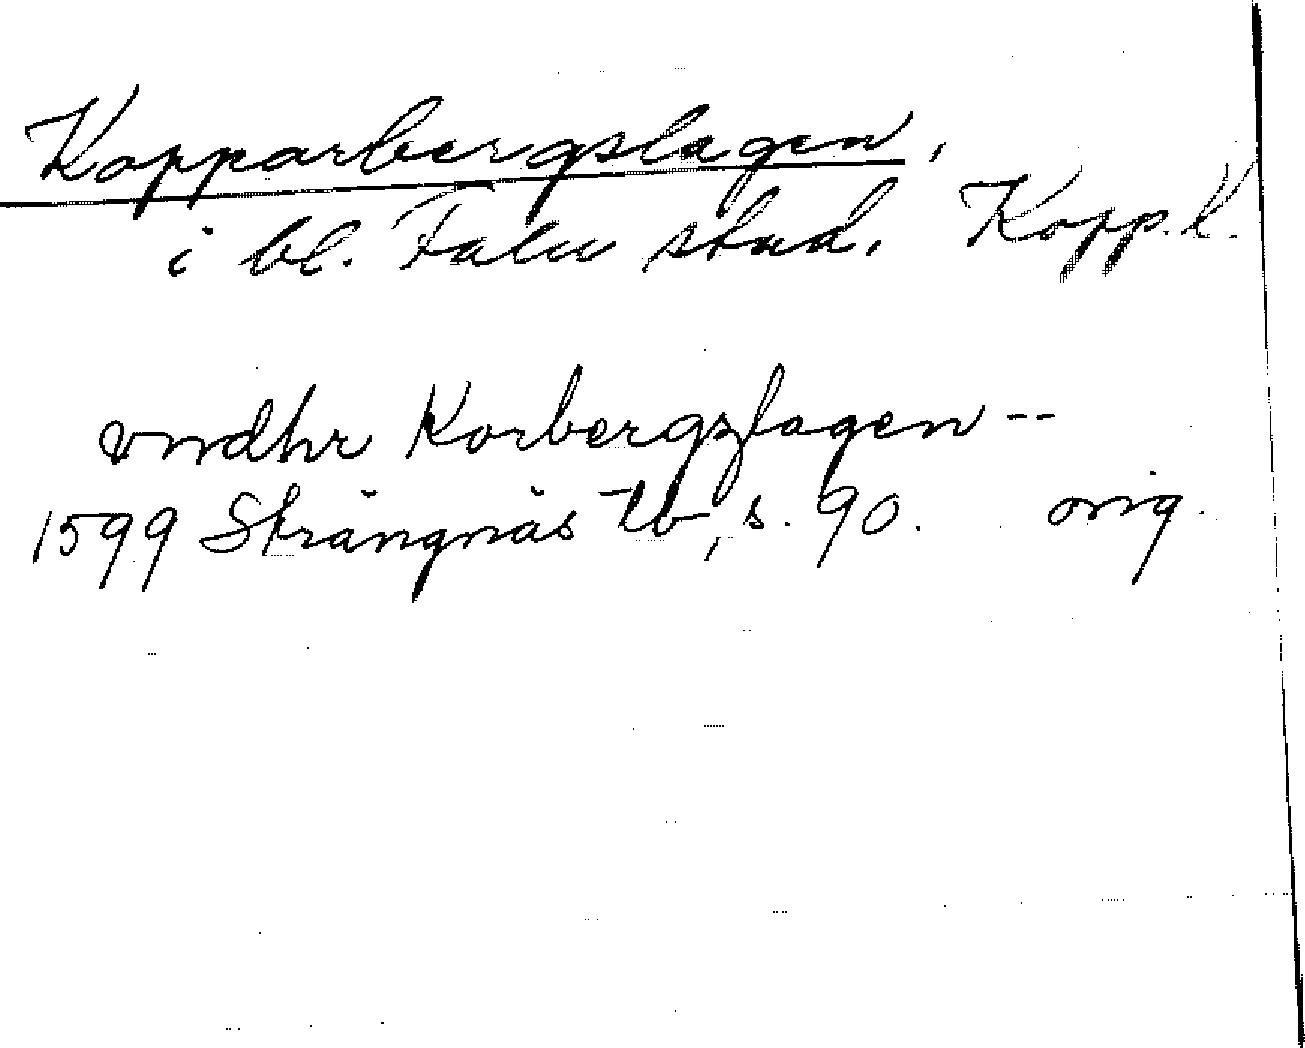 Kopparbergslagen,
i bl. Falu stad. Kopp. l.
vndhr Korbergzlagen--
1599 Strängnäs tb, s. 90. orig.